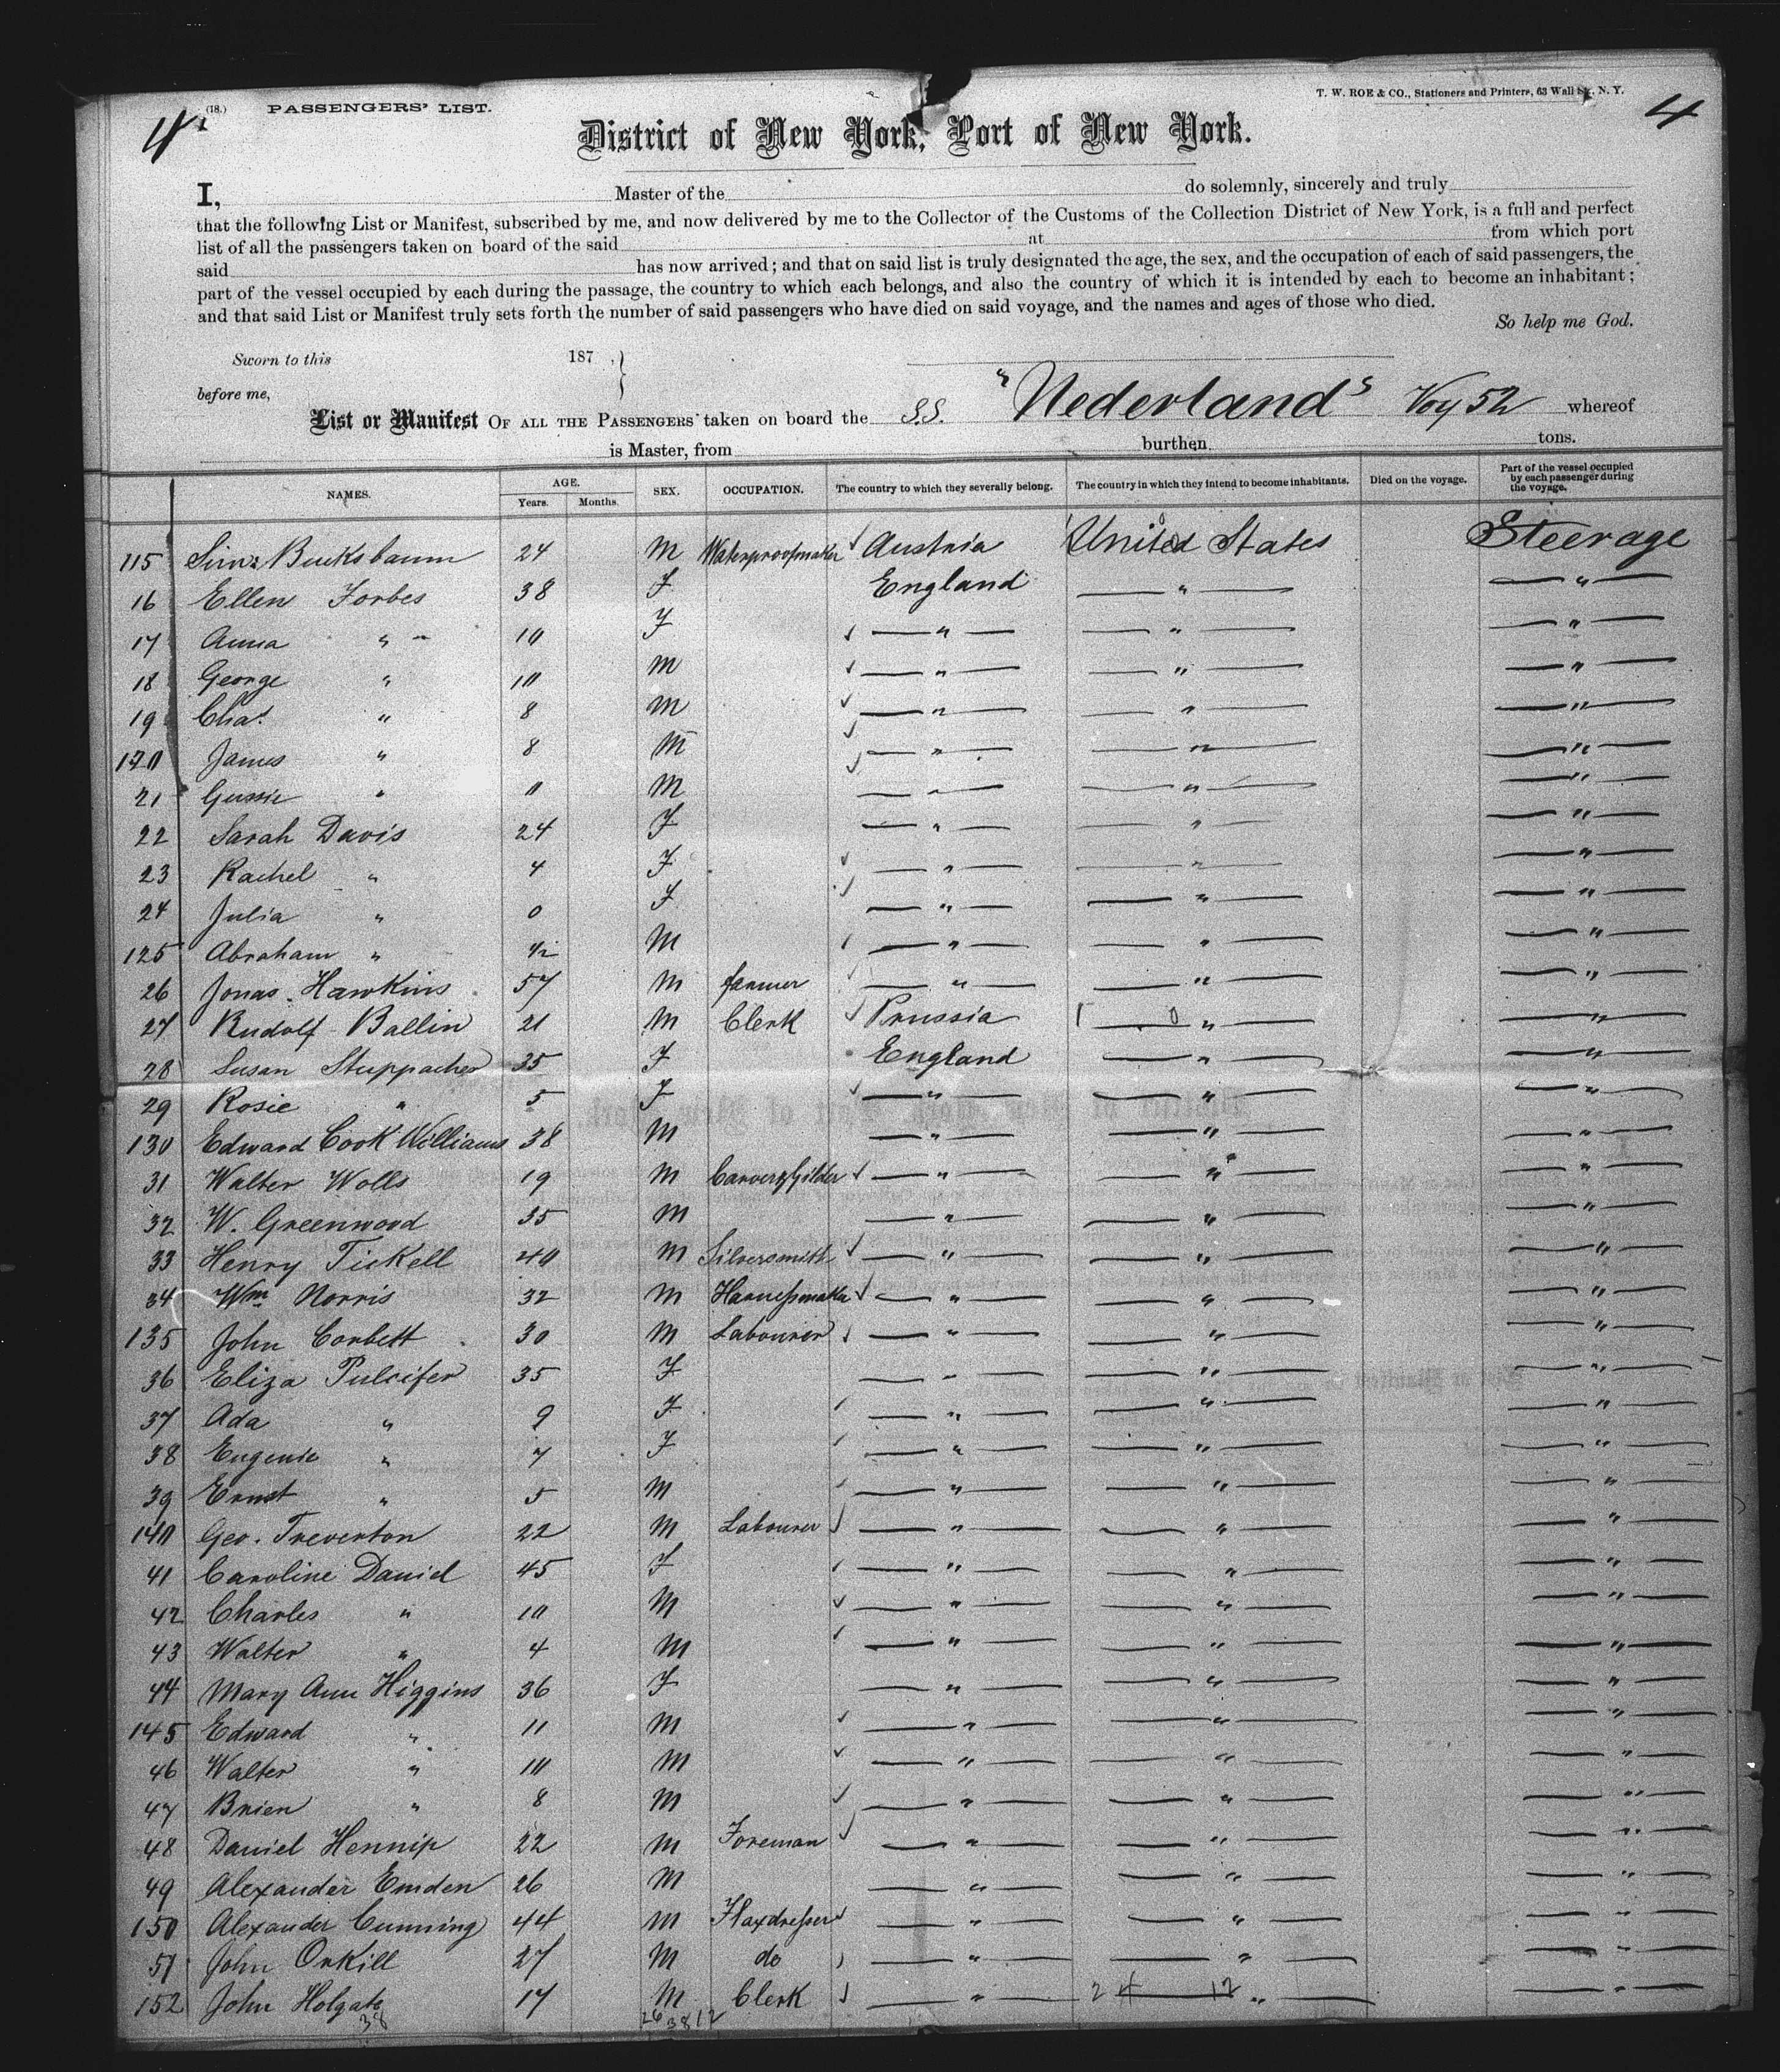 4 (18.) PASSENGERS' LIST. T. W. ROE & CO., Stationers and Printers, 63 Wall St., N. Y. 4
District of New York, Port of New York.
I, Master of the do solemnly, sincerely and truly
that the following List or Manifest, subscribed by me, and now delivered by me to the Collector of the Customs of the Collection District of New York, is a full and perfect
list of all the passengers taken on board of the said at from which port
said has now arrived; and that on said list is truly designated the age, the sex, and the occupation of each of said passengers, the
part of the vessel occupied by each during the passage, the country to which each belongs, and also the country of which it is intended by each to become an inhabitant;
and that said List or Manifest truly sets forth the number of said passengers who have died on said voyage, and the names and ages of those who died.
So help me God.
Sworn to this 187 ,
before me,
List or Manifest OF ALL THE PASSENGERS taken on board the S.S. "Nederland" Voy 52 whereof
is Master, from burthen tons.
NAMES. AGE. Years. Months. SEX. OCCUPATION. The country to which they severally belong. The country in which they intend to become inhabitants. Died on the voyage. Part of the vessel occupied by each passenger during the voyage.
115 Bucksbaum 24 M Waterproofmaker Austria United States Steerage
16 Ellen Forbes 38 F England " "
17 Anna " 10 F " " "
18 George " 10 M " " "
19 Chas. " 8 M " " "
120 James " 8 M " " "
21 Gussie " 0 M " " "
22 Sarah Davis 24 F " " "
23 Rachel " 4 F " " "
24 Julia " 0 F " " "
125 Abraham " 1/2 M " " "
26 Jonas Hawkins 57 M farmer " " "
27 Rudolf Ballin 21 M Clerk Prussia " "
28 Susan Stuppacher 35 F England " "
29 Rosie " 5 F " " "
130 Edward Cook Williams 38 M " " "
31 Walter Wolls 19 M Carver & Gilder " " "
32 W. Greenwood 35 M " " "
33 Henry Tickell 40 M Silversmith " " "
34 Wm Norris 32 M Harnessmaker " " "
135 John Corbett 30 M Labourer " " "
36 Eliza Pulcifer 35 F " " "
37 Ada " 9 F " " "
38 Eugenie " 7 F " " "
39 Ernst " 5 M " " "
140 Geo. Treverton 22 M Labourer " " "
41 Caroline Daniel 45 F " " "
42 Charles " 10 M " " "
43 Walter " 4 M " " "
44 Mary Ann Higgins 36 F " " "
145 Edward " 11 M " " "
46 Walter " 10 M " " "
47 Brien " 8 M " " "
48 Daniel Hennip 22 M Foreman " " "
49 Alexander Emden 26 M " " "
150 Alexander Cumming 44 M Flaxdresser " " "
51 John Orkill 27 M do " " "
152 John Holgate 17 M Clerk " 24 12 " "
38 26 38 12